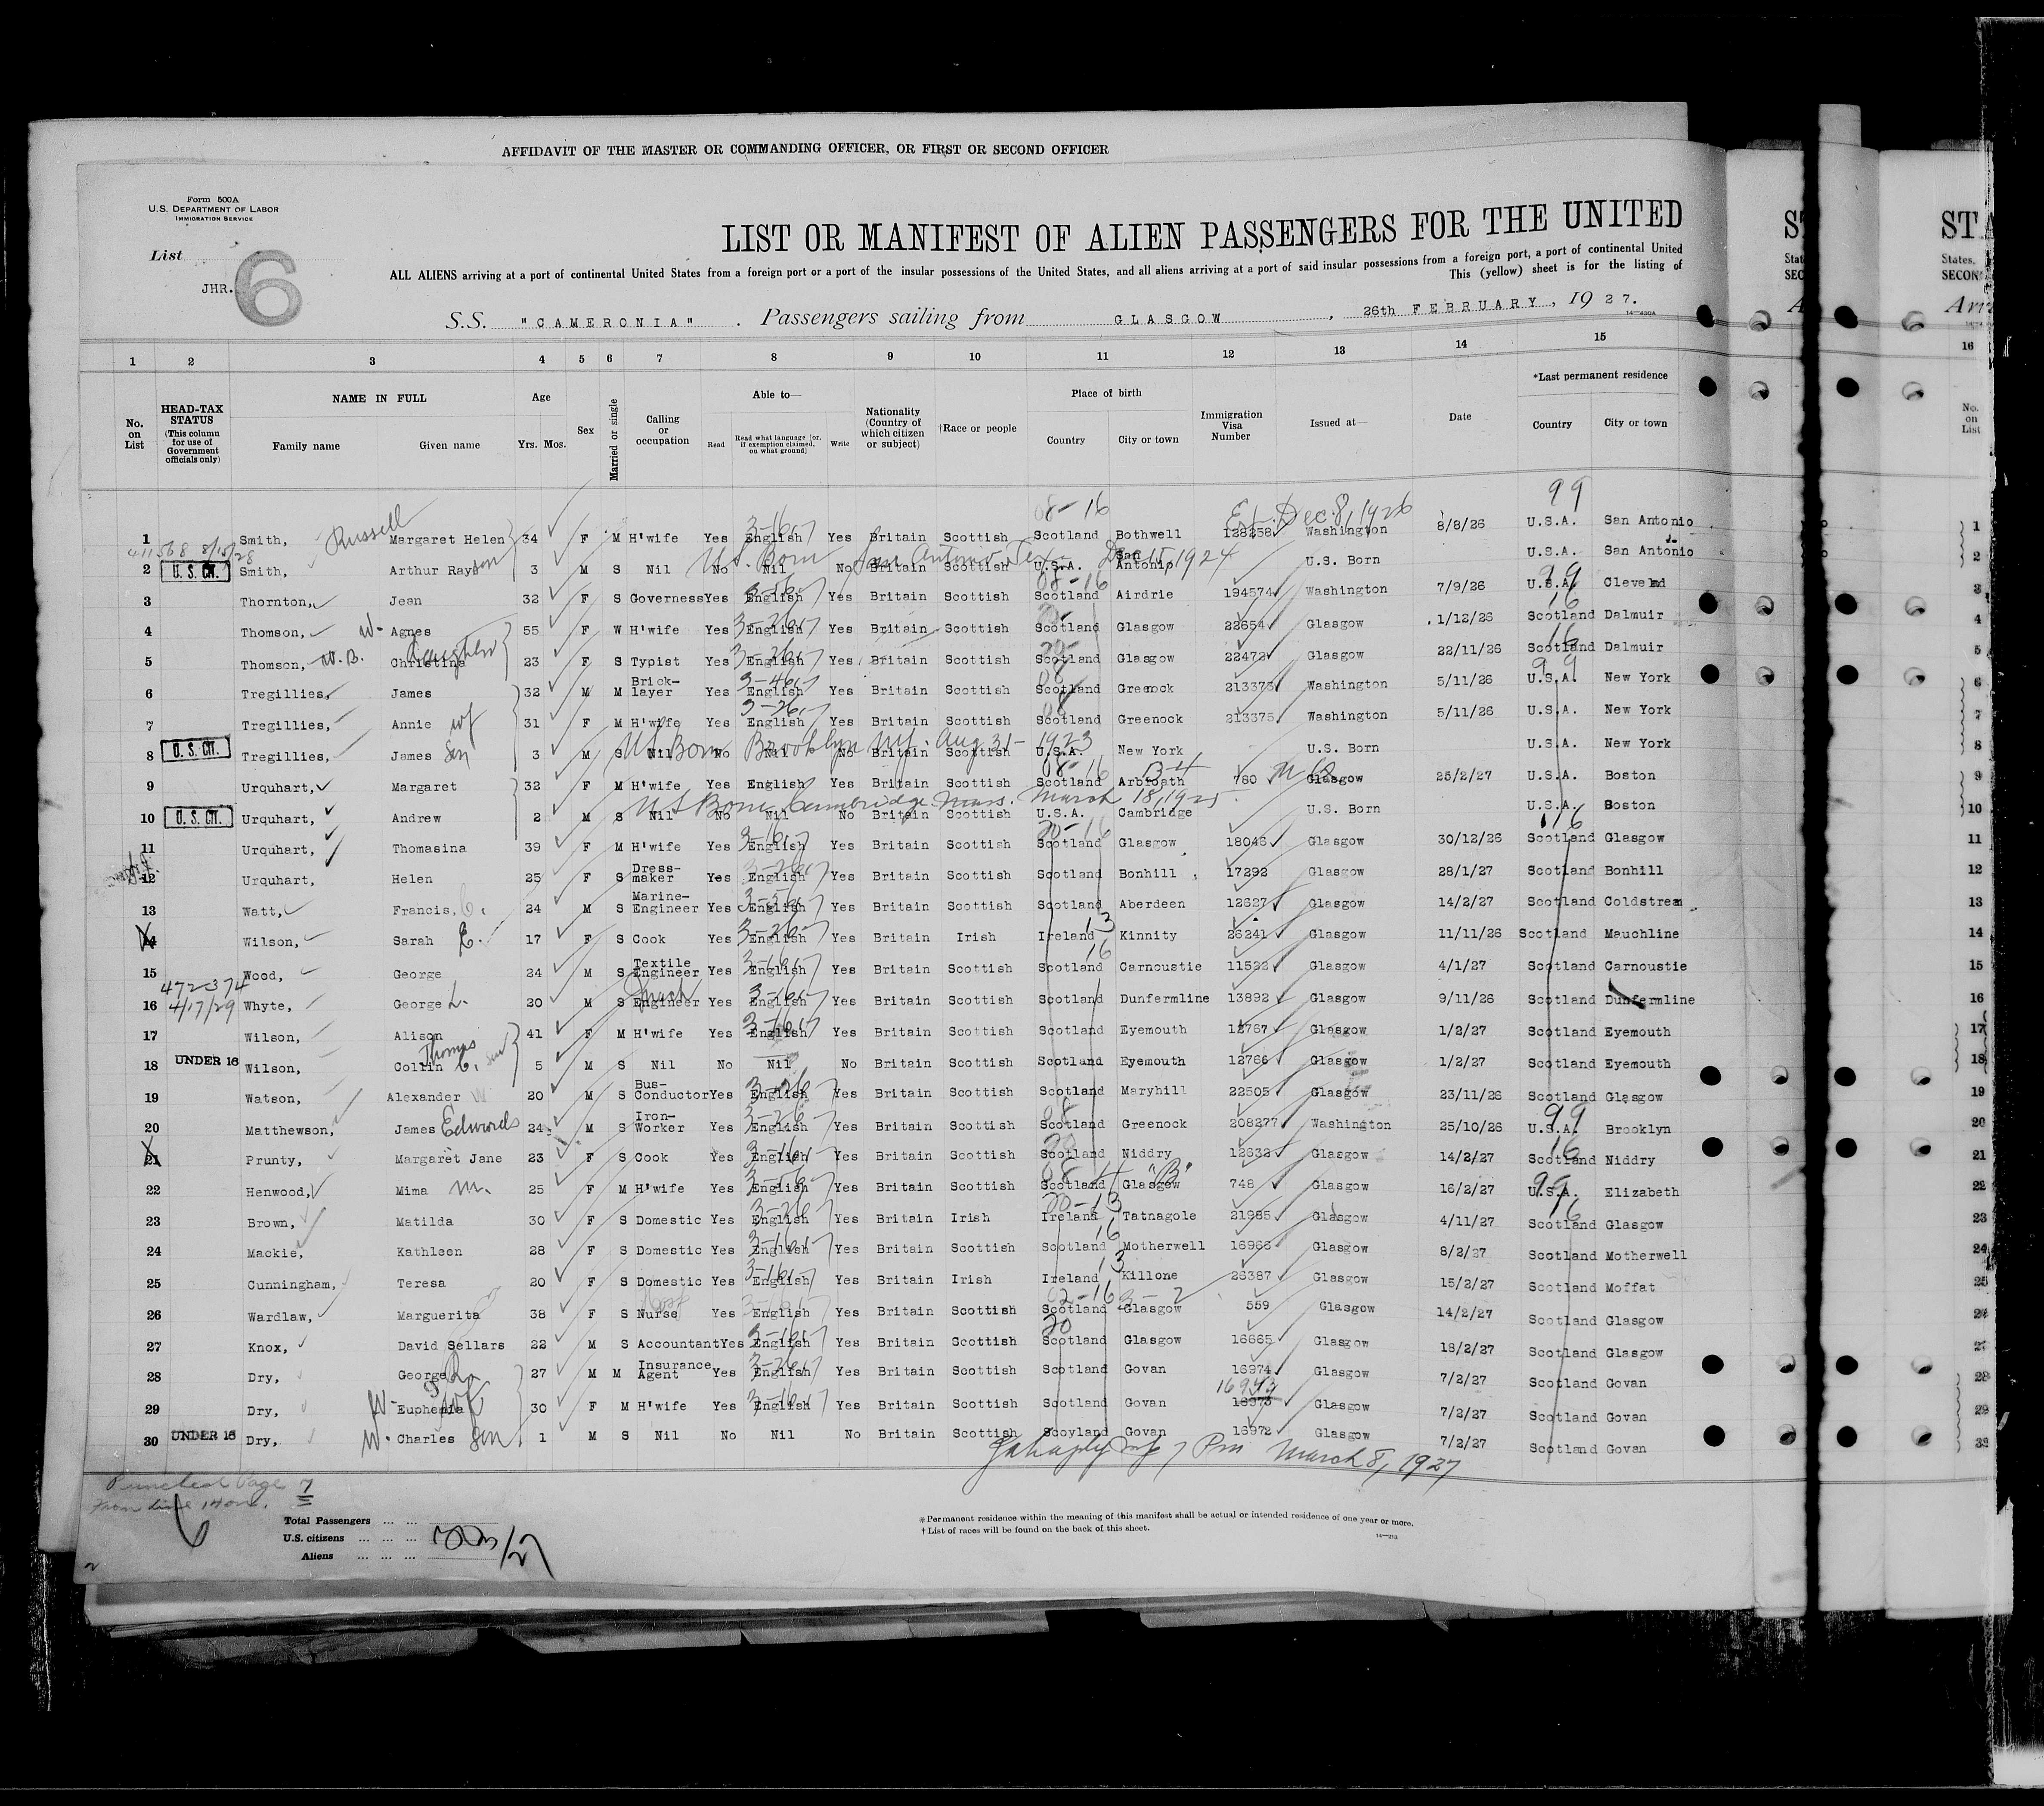 AFFIDAVIT OF THE MASTER OR COMMANDING OFFICER, OR FIRST OR SECOND OFFICER
Form 500A
U.S. DEPARTMENT OF LABOR
IMMIGRATION SERVICE
List 6
JHR.
LIST OR MANIFEST OF ALIEN PASSENGERS FOR THE UNITED
ALL ALIENS arriving at a port of continental United States from a foreign port or a port of the insular possessions of the United States, and all aliens arriving at a port of said insular possessions from a foreign port, a port of continental United
This (yellow) sheet is for the listing of
S.S. "CAMERONIA". Passengers sailing from GLASGOW, 26th FEBRUARY, 1927.
1 2 3 4 5 6 7 8 9 10 11 12 13 14 15
No. on List
HEAD-TAX STATUS (This column for use of Government officials only)
NAME IN FULL Family name Given name
Age Yrs. Mos.
Sex
Married or single
Calling or occupation
Able to— Read Read what language [or, if exemption claimed, on what ground] Write
Nationality (Country of which citizen or subject)
†Race or people
Place of birth Country City or town
Immigration Visa Number
Issued at—
Date
*Last permanent residence Country City or town
08-16 Ext. Dec. 8, 1926 99
1 Smith, Russell Margaret Helen 34 F M H'wife Yes English Yes Britain Scottish Scotland Bothwell 128258 Washington 8/8/26 U.S.A. San Antonio
U.S. Born San Antonio Tex Dec 15, 1924
2 U.S. CIT. Smith, Arthur Ray son 3 M S Nil No Nil No Britain Scottish U.S.A. San Antonio U.S. Born U.S.A. San Antonio
3 Thornton, Jean 32 F S Governess Yes English Yes Britain Scottish Scotland Airdrie 194574 Washington 7/9/26 U.S.A. Cleveland
4 Thomson, W- Agnes 55 F W H'wife Yes English Yes Britain Scottish Scotland Glasgow 22654 Glasgow 1/12/26 Scotland Dalmuir
5 Thomson, W.B. Christina daughter 23 F S Typist Yes English Yes Britain Scottish Scotland Glasgow 22472 Glasgow 22/11/26 Scotland Dalmuir
6 Tregillies, James 32 M M Brick-layer Yes English Yes Britain Scottish Scotland Greenock 213376 Washington 5/11/26 U.S.A. New York
7 Tregillies, Annie wf 31 F M H'wife Yes English Yes Britain Scottish Scotland Greenock 213375 Washington 5/11/26 U.S.A. New York
US Born Brooklyn NY. Aug 31- 1923
8 U.S. CIT. Tregillies, James Son 3 M S Nil No Nil No Britain Scottish U.S.A. New York U.S. Born U.S.A. New York
9 Urquhart, Margaret 32 F M H'wife Yes English Yes Britain Scottish Scotland Arbroath 760 Glasgow 25/2/27 U.S.A. Boston
US Born Cambridge Mass. March 18, 1925
10 U.S. CIT. Urquhart, Andrew 2 M S Nil No Nil No Britain Scottish U.S.A. Cambridge U.S. Born U.S.A. Boston
11 Urquhart, Thomasina 39 F M H'wife Yes English Yes Britain Scottish Scotland Glasgow 18046 Glasgow 30/12/26 Scotland Glasgow
12 Urquhart, Helen 25 F S Dress-maker Yes English Yes Britain Scottish Scotland Bonhill 17292 Glasgow 28/1/27 Scotland Bonhill
13 Watt, Francis, C. 24 M S Marine-Engineer Yes English Yes Britain Scottish Scotland Aberdeen 12627 Glasgow 14/2/27 Scotland Coldstream
14 Wilson, Sarah E. 17 F S Cook Yes English Yes Britain Irish Ireland Kinnity 26241 Glasgow 11/11/26 Scotland Mauchline
15 Wood, George 24 M S Textile Engineer Yes English Yes Britain Scottish Scotland Carnoustie 11522 Glasgow 4/1/27 Scotland Carnoustie
472374 4/17/29
16 Whyte, George L. 20 M S Engineer Yes English Yes Britain Scottish Scotland Dunfermline 13892 Glasgow 9/11/26 Scotland Dunfermline
17 Wilson, Alison 41 F M H'wife Yes English Yes Britain Scottish Scotland Eyemouth 12767 Glasgow 1/2/27 Scotland Eyemouth
18 UNDER 16 Wilson, Collin Thomas C. Son 5 M S Nil No Nil No Britain Scottish Scotland Eyemouth 12766 Glasgow 1/2/27 Scotland Eyemouth
19 Watson, Alexander W 20 M S Bus-Conductor Yes English Yes Britain Scottish Scotland Maryhill 22505 Glasgow 23/11/26 Scotland Glasgow
20 Matthewson, James Edwards 24 M S Iron-Worker Yes English Yes Britain Scottish Scotland Greenock 208277 Washington 25/10/26 U.S.A. Brooklyn
21 Prunty, Margaret Jane 23 F S Cook Yes English Yes Britain Scottish Scotland Niddry 12632 Glasgow 14/2/27 Scotland Niddry
22 Henwood, Mima M. 25 F M H'wife Yes English Yes Britain Scottish Scotland Glasgow 748 Glasgow 16/2/27 U.S.A. Elizabeth
23 Brown, Matilda 30 F S Domestic Yes English Yes Britain Irish Ireland Tatnagole 21985 Glasgow 4/11/27 Scotland Glasgow
24 Mackie, Kathleen 28 F S Domestic Yes English Yes Britain Scottish Scotland Motherwell 16966 Glasgow 8/2/27 Scotland Motherwell
25 Cunningham, Teresa 20 F S Domestic Yes English Yes Britain Irish Ireland Killone 26387 Glasgow 15/2/27 Scotland Moffat
26 Wardlaw, Marguerita 38 F S Nurse Yes English Yes Britain Scottish Scotland Glasgow 559 Glasgow 14/2/27 Scotland Glasgow
27 Knox, David Sellars 22 M S Accountant Yes English Yes Britain Scottish Scotland Glasgow 16665 Glasgow 18/2/27 Scotland Glasgow
28 Dry, George 27 M M Insurance Agent Yes English Yes Britain Scottish Scotland Govan 16974 Glasgow 7/2/27 Scotland Govan
29 Dry, W- Euphemia wf 30 F M H'wife Yes English Yes Britain Scottish Scotland Govan 16973 Glasgow 7/2/27 Scotland Govan
30 UNDER 16 Dry, W. Charles Son 1 M S Nil No Nil No Britain Scottish Scoyland Govan 16972 Glasgow 7/2/27 Scotland Govan
March 8, 1927
Punched Page 7
Total Passengers ... ...
U.S. citizens ... ... ...
Aliens ... ... ...
*Permanent residence within the meaning of this manifest shall be actual or intended residence of one year or more.
†List of races will be found on the back of this sheet.